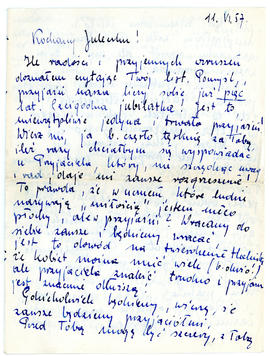 11. VI. 57.
Kochany Julenku!
Ile radości i przyjemnych wzruszeń
doznałem czytając Twój list. Pomyśl,
przyjaźń nasza liczy sobie już pięć
lat. Czcigodna jubilatka! Jest to
niewątpliwie jedyna i trwała przyjaźń!
Wierz mi, ja b. często tęsknię za Tobą
ileż razy chciałbym się wypowiadać
u Przyjaciela, który nie szczędząc
i rad, daje mi zawsze rozgrzeszenie!
To prawda, że w uczuciu które ludzie
nazywają "miłością" jestem nieco
płochy, ale w przyjaźni? Wracamy do
siebie zawsze i będziemy wracać
jest to dowód na twierdzenie
że kobiet można mieć wiele (b. dużo!)
ale przyjaciela znaleźć trudno i przyjaźń
jest znacznie dłuższa!
Gdziekolwiek będziemy, wierzę, że
zawsze będziemy przyjaciółmi.
Przed Tobą mogę być szczery, z Tobą